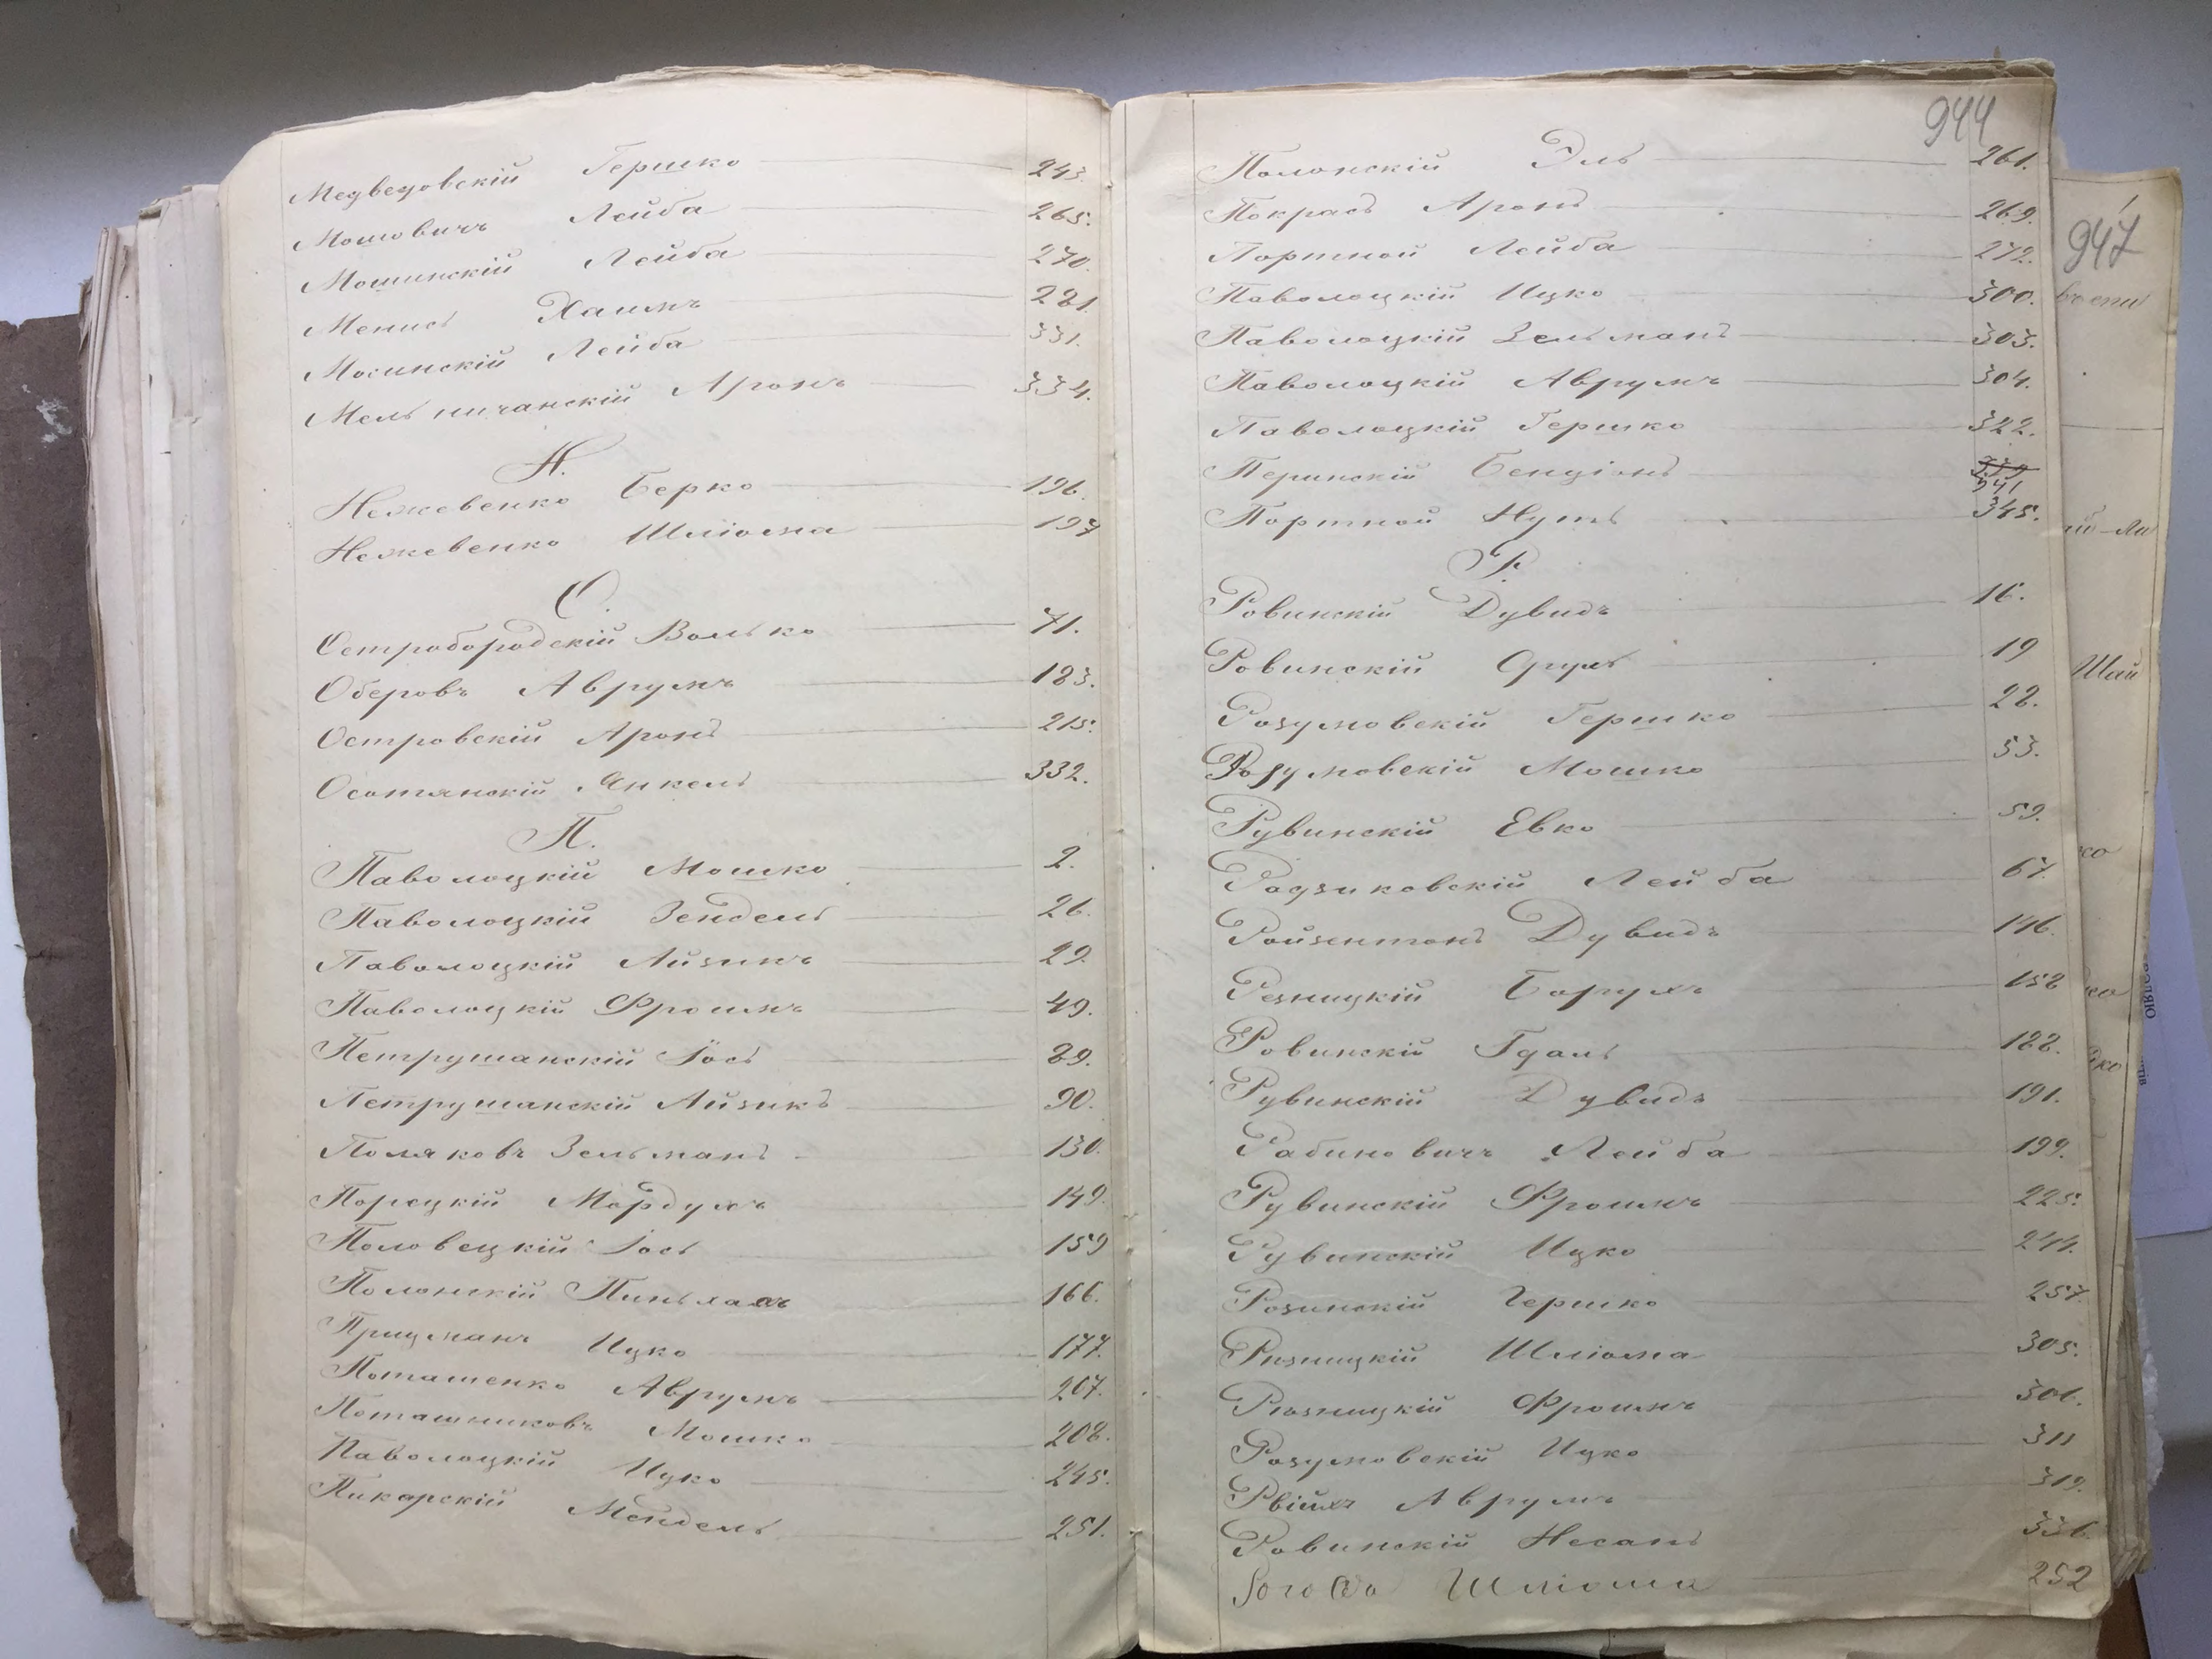 Медведовскій Гершко 243.
Мошовичъ Лейба 265.
Мошинскій Лейба 270.
Менисъ Хаимъ 281.
Мосинскій Лейба 331.
Мельничанскій Аронъ 334.
Н.
Нежевенко Берко 196.
Нежевенко Шліома 197
О.
Остробородскій Волько 71.
Оберовъ Аврумъ 183.
Островскій Аронъ 215.
Осотянскій Янкель 332.
П.
Паволоцкій Мошко 2.
Паволоцкій Зендель 26.
Паволоцкій Айзикъ 29.
Паволоцкій Фроимъ 49.
Петрушанскій Іось 89.
Петрушанскій Айзикъ 90.
Поляковъ Зельманъ 130.
Порецкій Мордухъ 149.
Половецкій Іось 159
Полонскій Пиньхасъ 166.
Прицманъ Ицко 177.
Поташенко Аврумъ 207.
Поташниковъ Мошко 208.
Паволоцкій Ицко 245.
Пикарскій Мендель 251.
944
Полонскій Эль 261.
Покрасъ Аронъ 269.
Портной Лейба 272.
Паволоцкій Ицко 300.
Паволоцкій Зельманъ 303.
Паволоцкій Аврумъ 304.
Паволоцкій Гершко 322.
Перинскій Бенціонъ 339 341
Портной Нутъ 345.
Р.
Ровинскій Дувидъ 16.
Ровинскій Сруль 19
Розумовскій Гершко 22.
Розумовскій Мошко 53.
Рувинскій Евко 59.
Родзиковскій Лейба 67.
Ройзентонъ Дувидъ 146.
Резницкій Борухъ 158
Ровинскій Гдаль 188.
Рувинскій Дувидъ 191.
Рабиновичъ Лейба 199.
Рувинскій Фроимъ 225.
Рувинскій Ицко 244.
Розинскій Гершко 257.
Ризницкій Шліома 305.
Розницкій Фроимъ 306.
Розумовскій Ицко 311
Аврумъ 319.
Ровинскій Несанъ 336.
Шліома 252
947